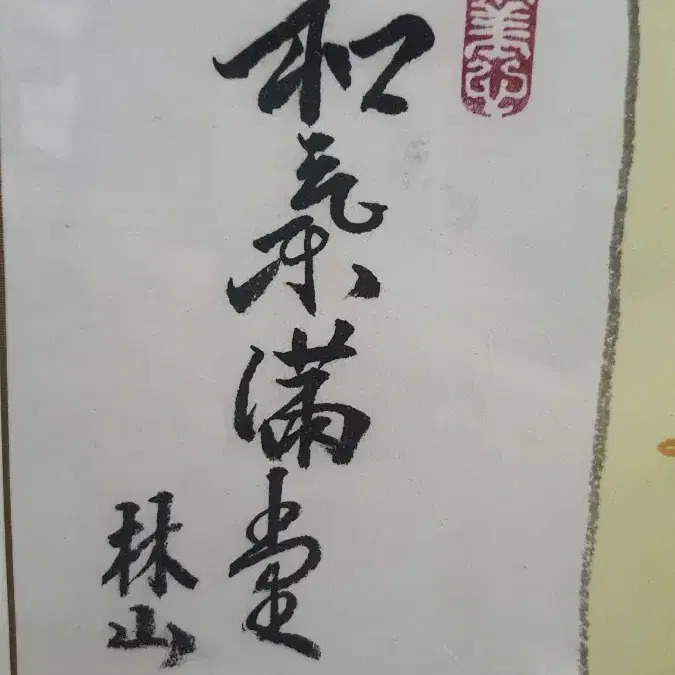 和氣滿堂
林山